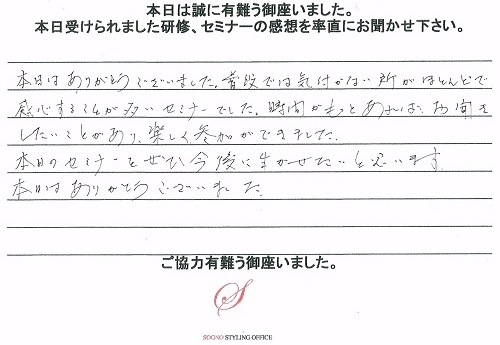 本日は誠に有難う御座いました。
本日受けられました研修、セミナーの感想を率直にお聞かせ下さい。
本日はありがとうございました。普段では気付かない所がほとんどで
感心することが多いセミナーでした。時間がもっとあれば、お聞き
したいことがあり、楽しく参加ができました。
本日のセミナーをぜひ今後に生かせたいと思います。
本日はありがとうございました
ご協力有難う御座いました。
S
SOGNO STYLING OFFICE